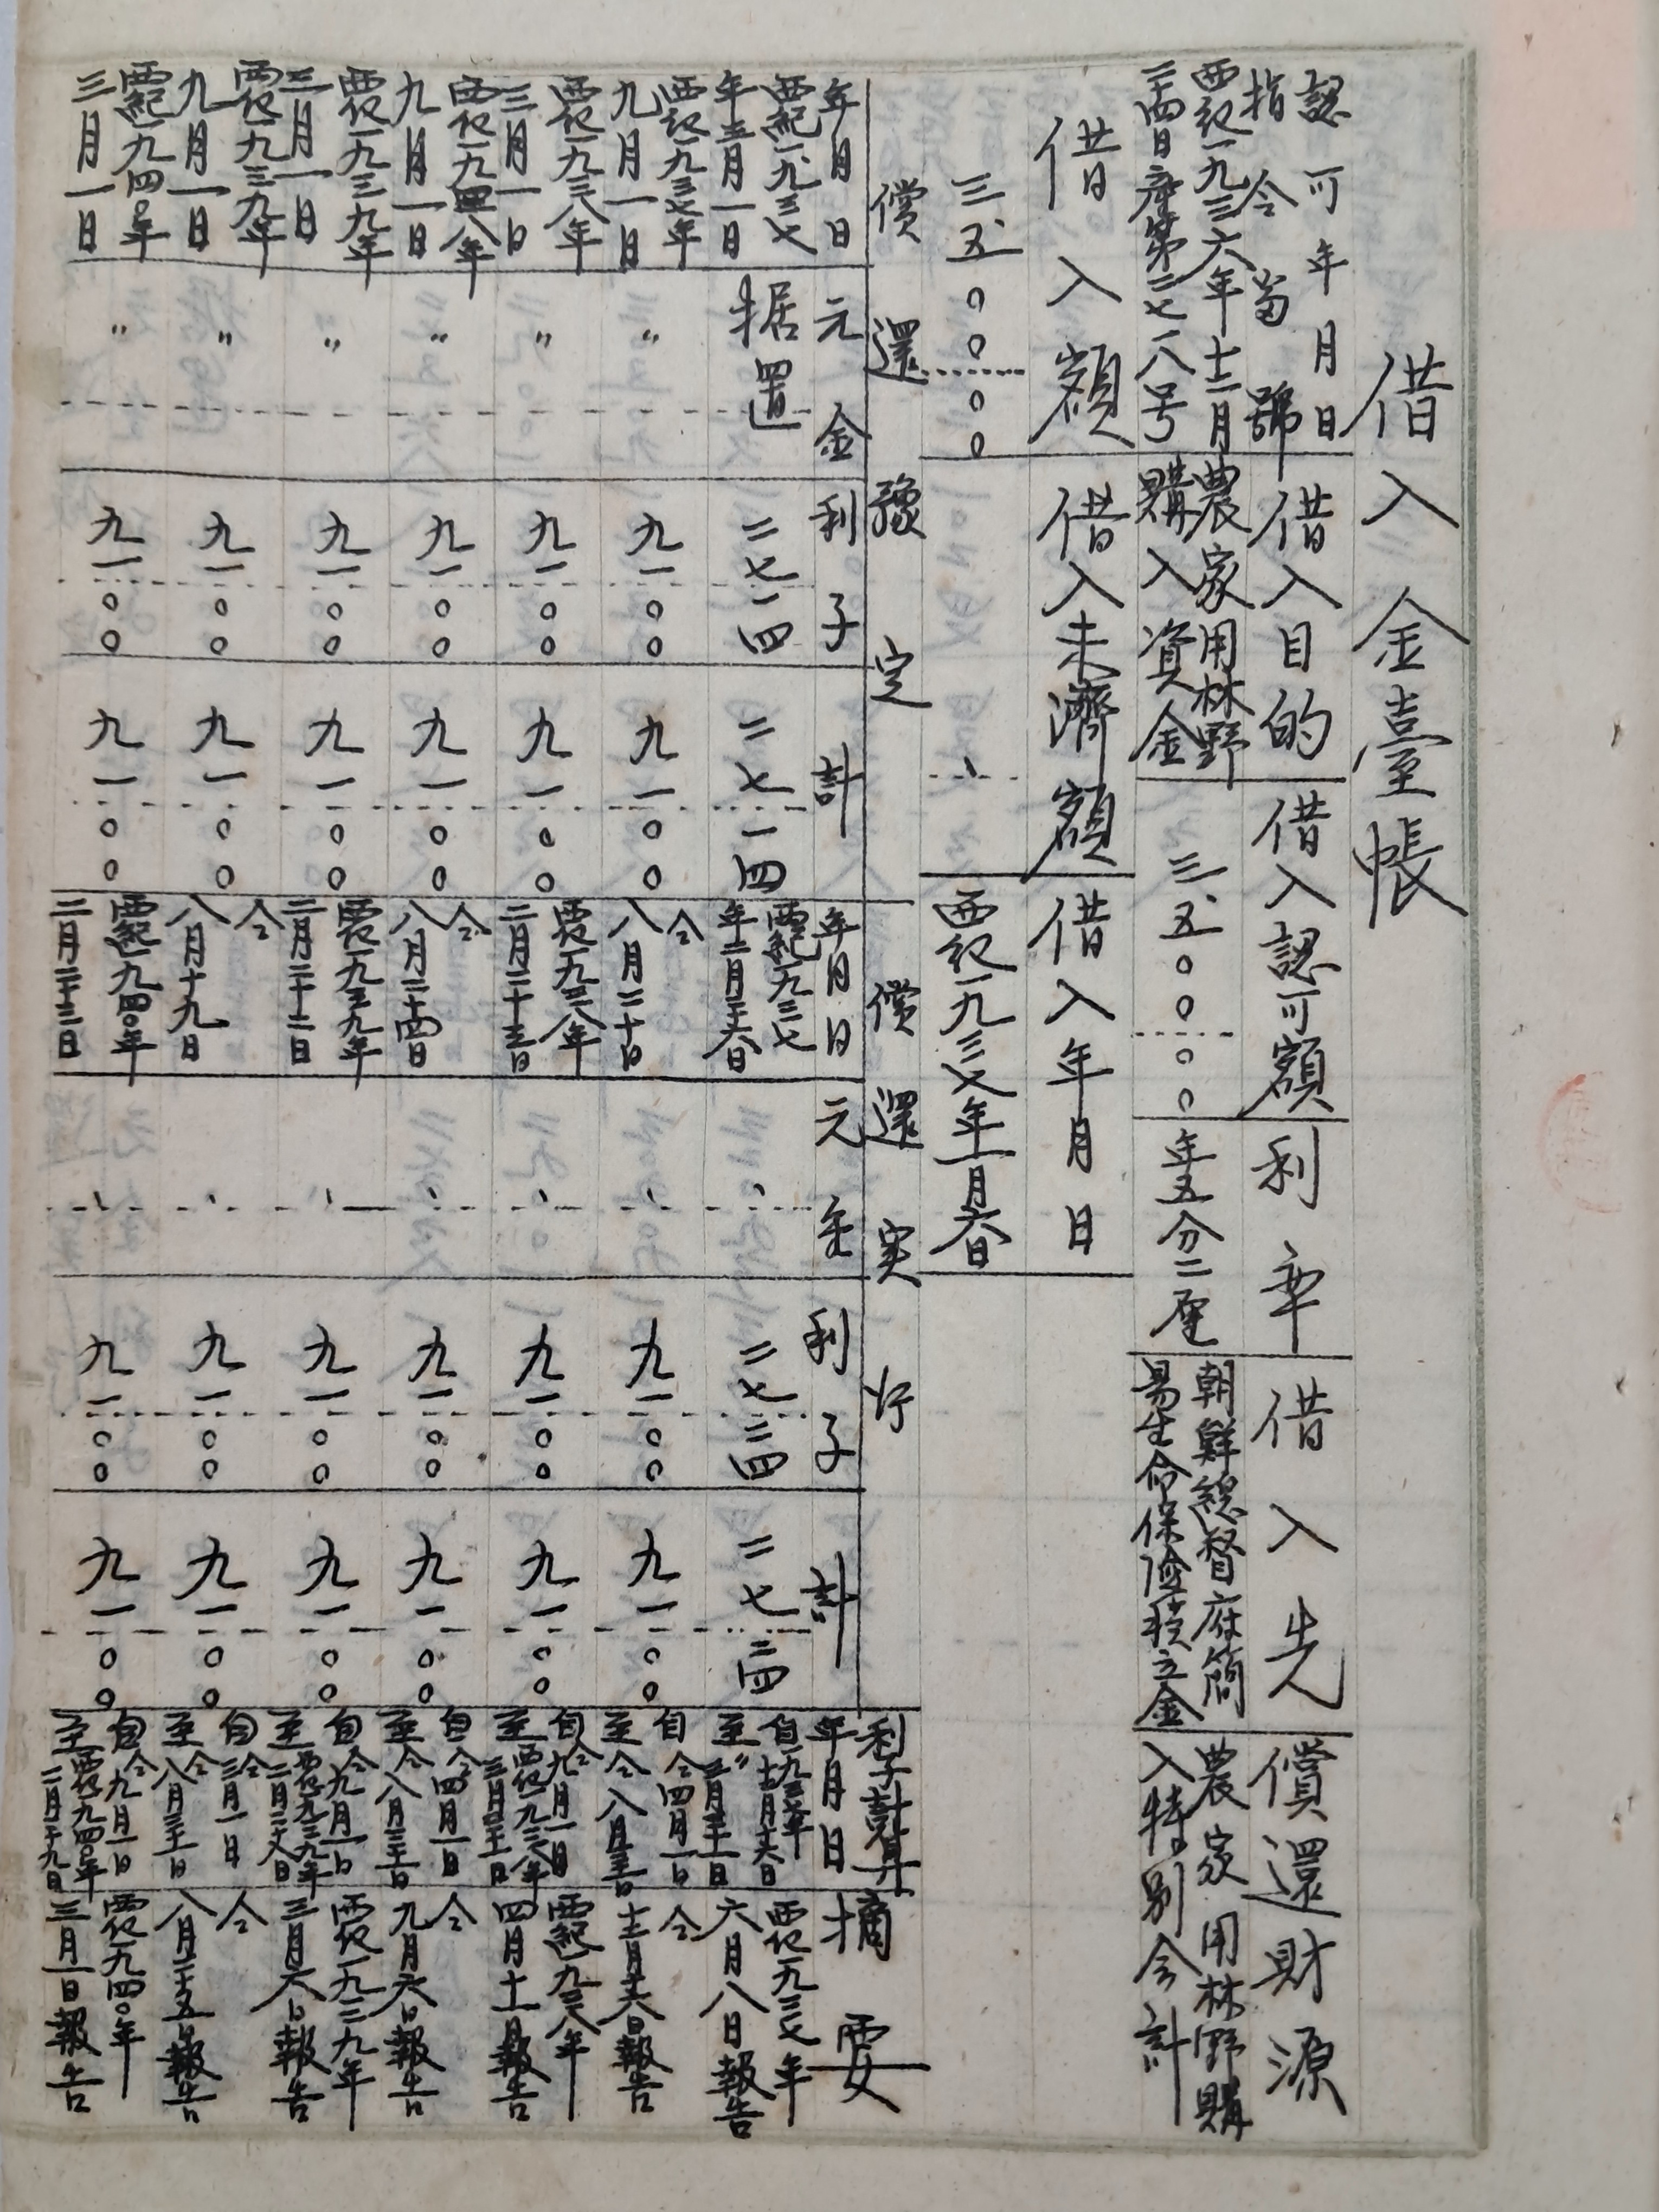 借入金臺帳
認可年月日
指令番號
借入目的
借入認可額
利率
借入先
償還財源
西紀一九三六年十二月
二十四日産第二七八号
農家用林野
購入資金
三、五〇〇〇〇
年五分二厘
朝鮮総督府簡
易生命保險積立金
農家用林野購
入特別会計
借入額
借入未濟額
借入年月日
三、五〇〇〇〇
、
西紀一九三七年一月六日
償還豫定
償還実行
利子計算
年月日
摘要
年月日
元金
利子
計
年月日
元金
利子
計
西紀一九三七
年三月一日
据置
二七一四
二七一四
西紀一九三七
年二月二十六日
、
二七三四
二七三四
西紀一九三七年
六月八日報告
西紀一九三七年
九月一日
〃
九一〇〇
九一〇〇
仝
八月二十日
、
九一〇〇
九一〇〇
自仝四月一日
至仝八月三十一日
仝
十二月十六日報告
西紀一九三八年
三月一日
〃
九一〇〇
九一〇〇
西紀一九三八年
二月二十五日
、
九一〇〇
九一〇〇
自仝九月一日
至西紀一九三八年
三月三十一日
西紀一九三八年
四月十一日報告
西紀一九三八年
九月一日
〃
九一〇〇
九一〇〇
仝
八月二十四日
、
九一〇〇
九一〇〇
自仝四月一日
至仝八月三十一日
仝
九月六日報告
西紀一九三九年
三月一日
〃
九一〇〇
九一〇〇
西紀一九三九年
二月二十二日
、
九一〇〇
九一〇〇
自仝九月一日
至西紀一九三九年
二月二十八日
西紀一九三九年
三月六日報告
西紀一九三九年
九月一日
〃
九一〇〇
九一〇〇
仝
八月十九日
、
九一〇〇
九一〇〇
自仝三月一日
至仝八月三十一日
仝
八月二十五日報告
西紀一九四〇年
三月一日
〃
九一〇〇
九一〇〇
西紀一九四〇年
二月二十三日
、
九一〇〇
九一〇〇
自仝九月一日
至西紀一九四〇年
二月二十九日
西紀一九四〇年
三月一日報告